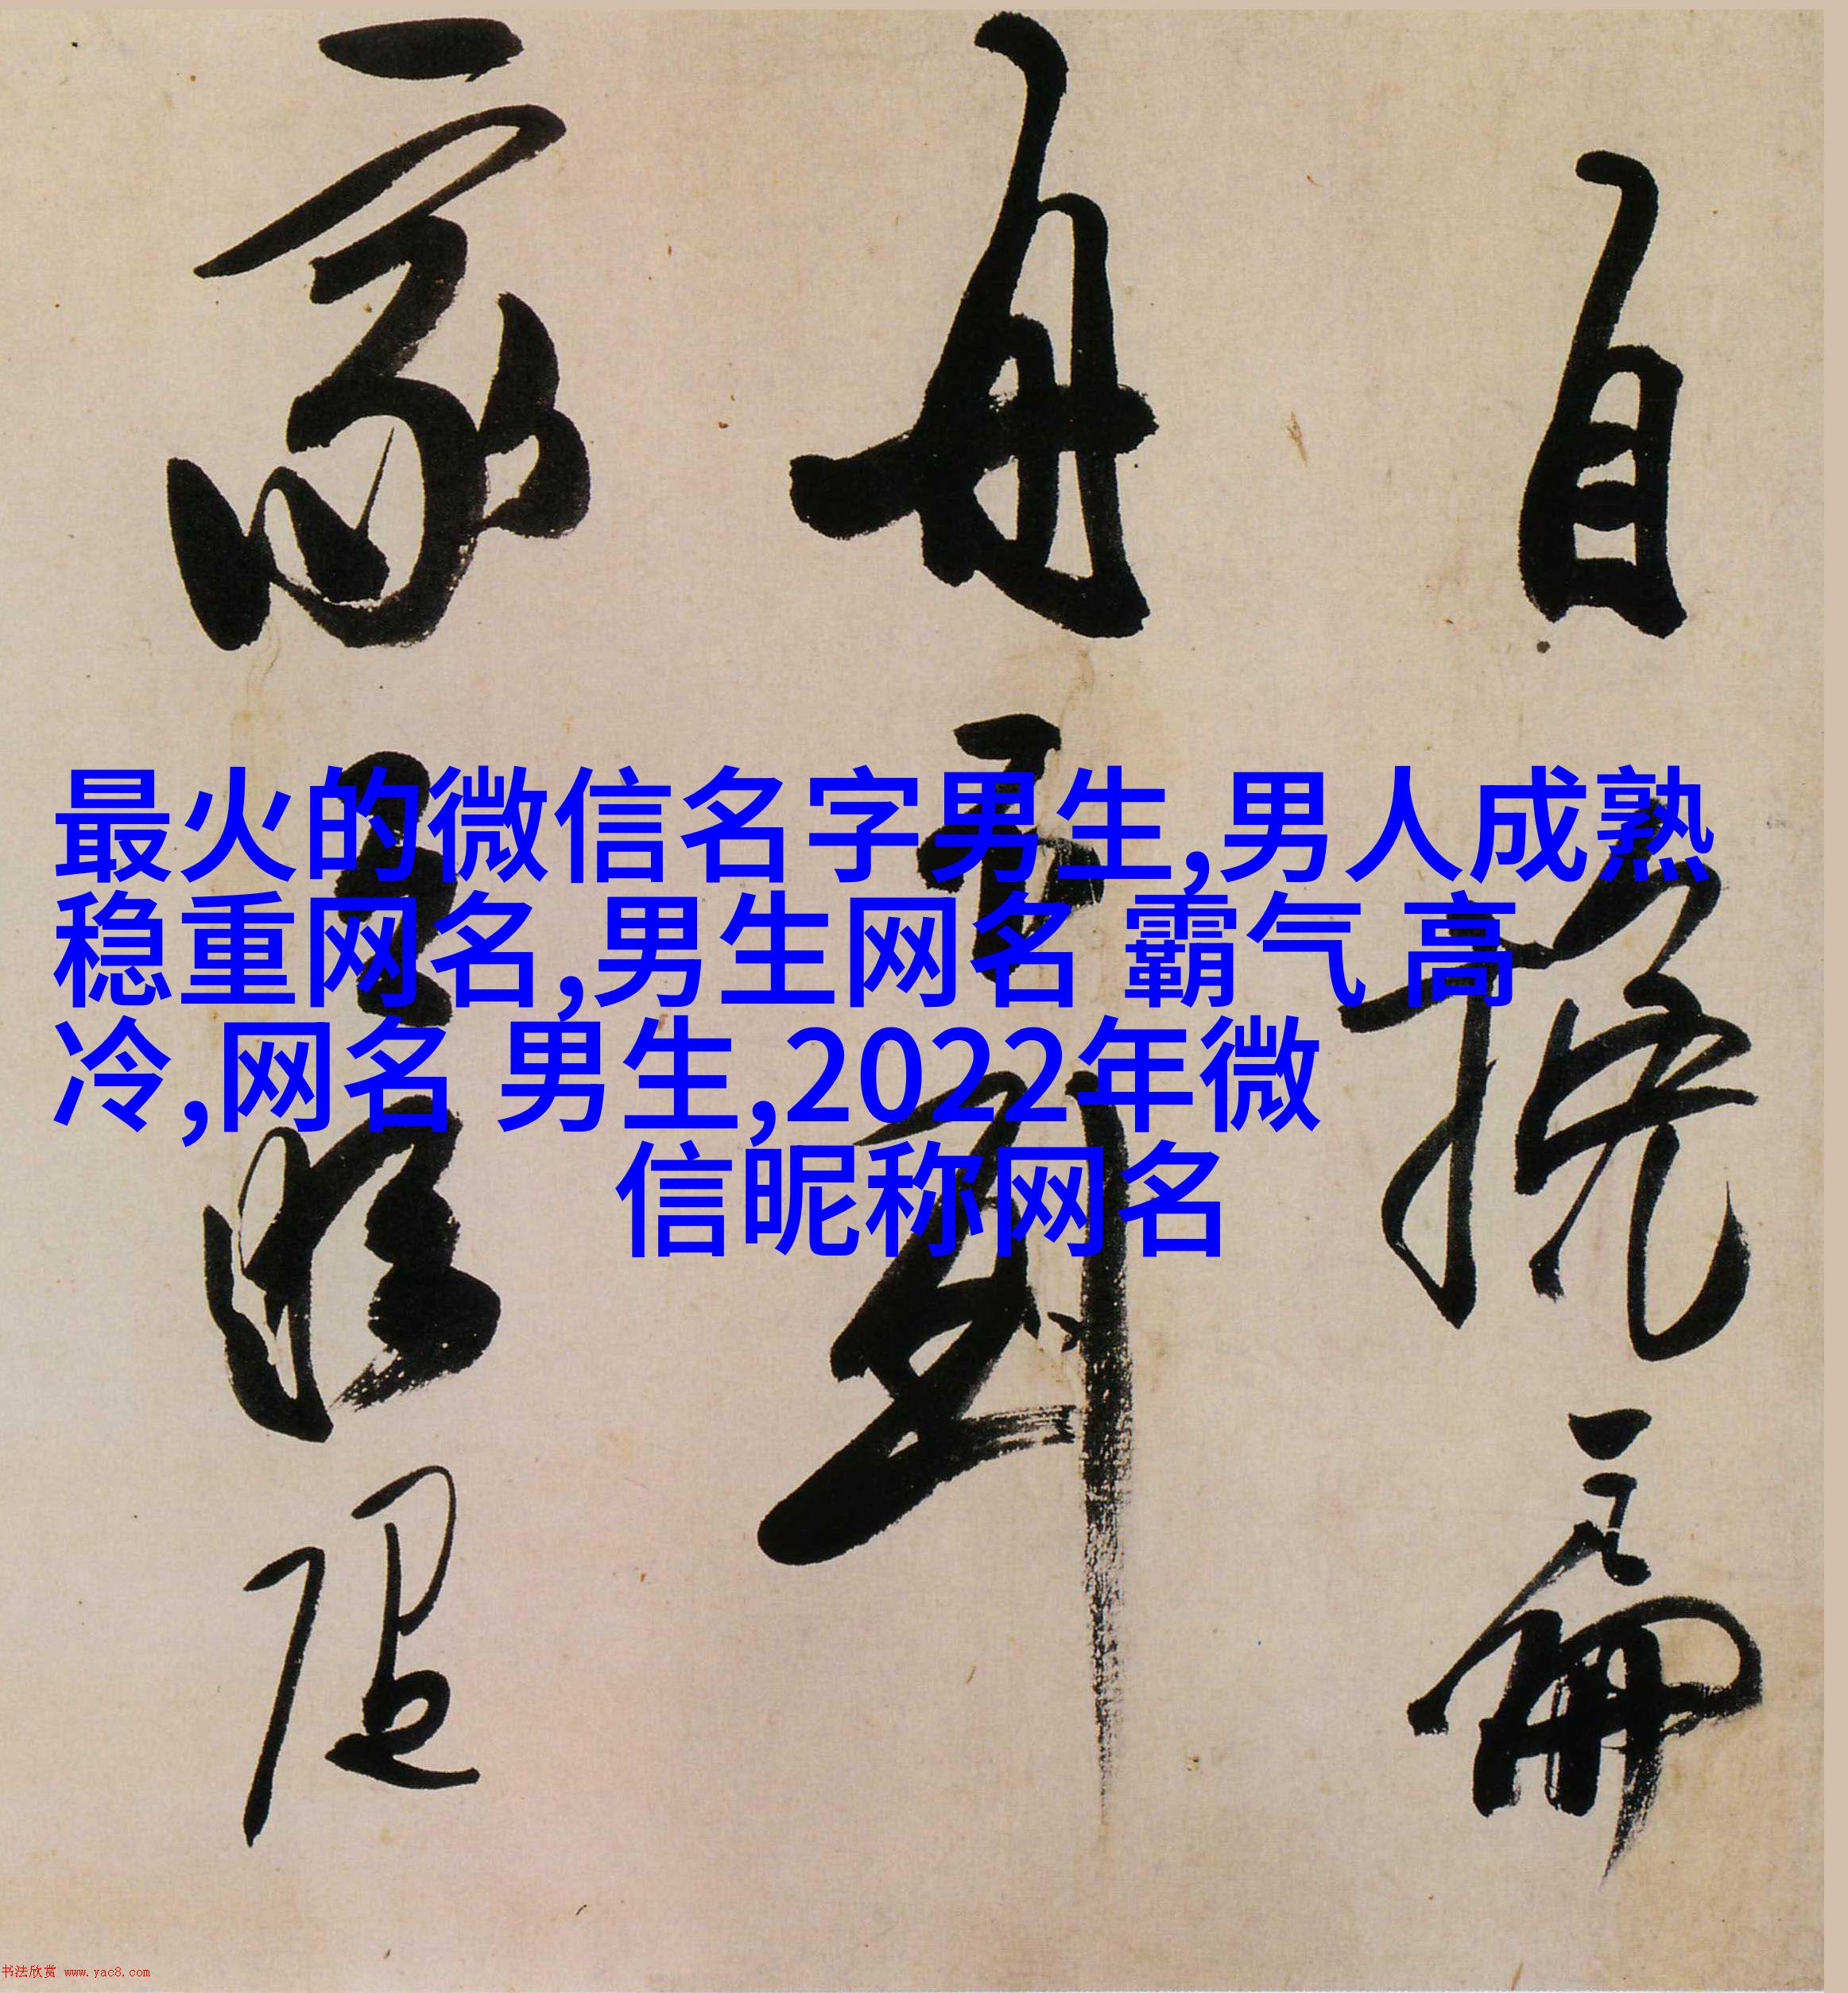 最火的微信名字男生,男人成熟
稳重网名,男生网名 霸气 高
冷,网名 男生,2022年微
信昵称网名
自挽扁
舟到
家
书法欣赏 www.yac8.com